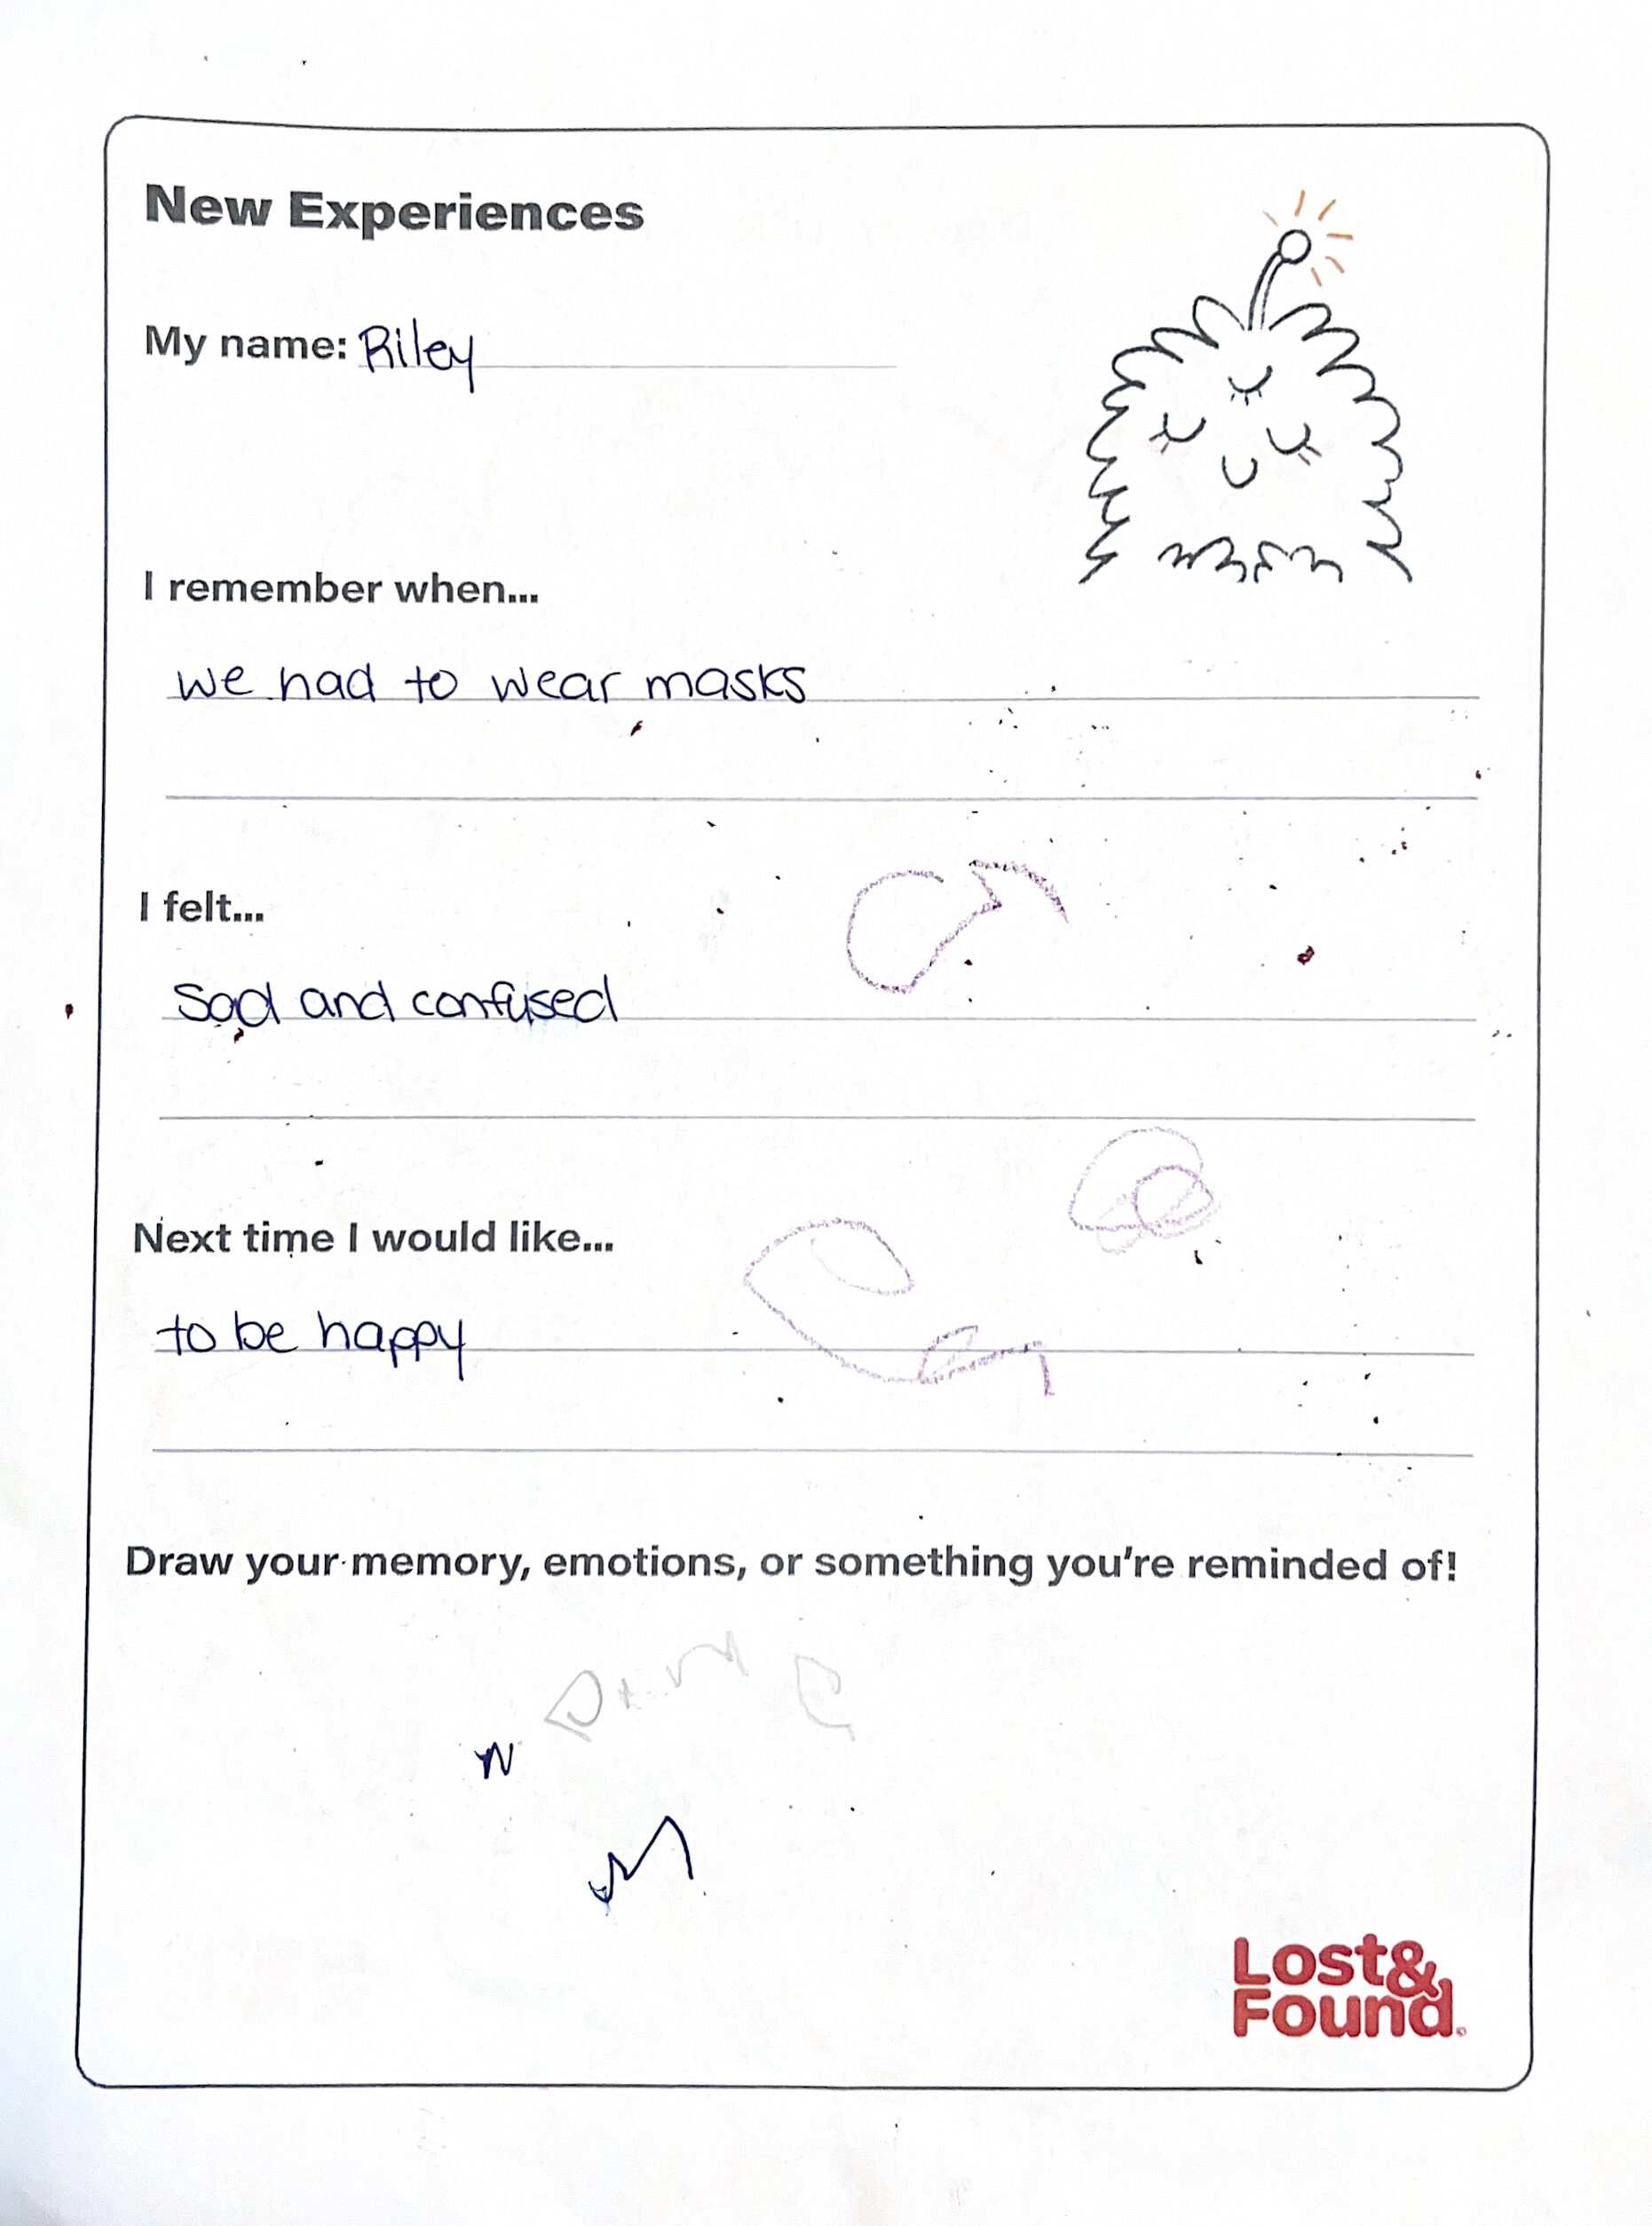 New Experiences
My name: Riley
I remember when...
we had to wear masks
I felt...
Sad and confused
Next time I would like...
to be happy
Draw your memory, emotions, or something you're reminded of!
Lost&
Found